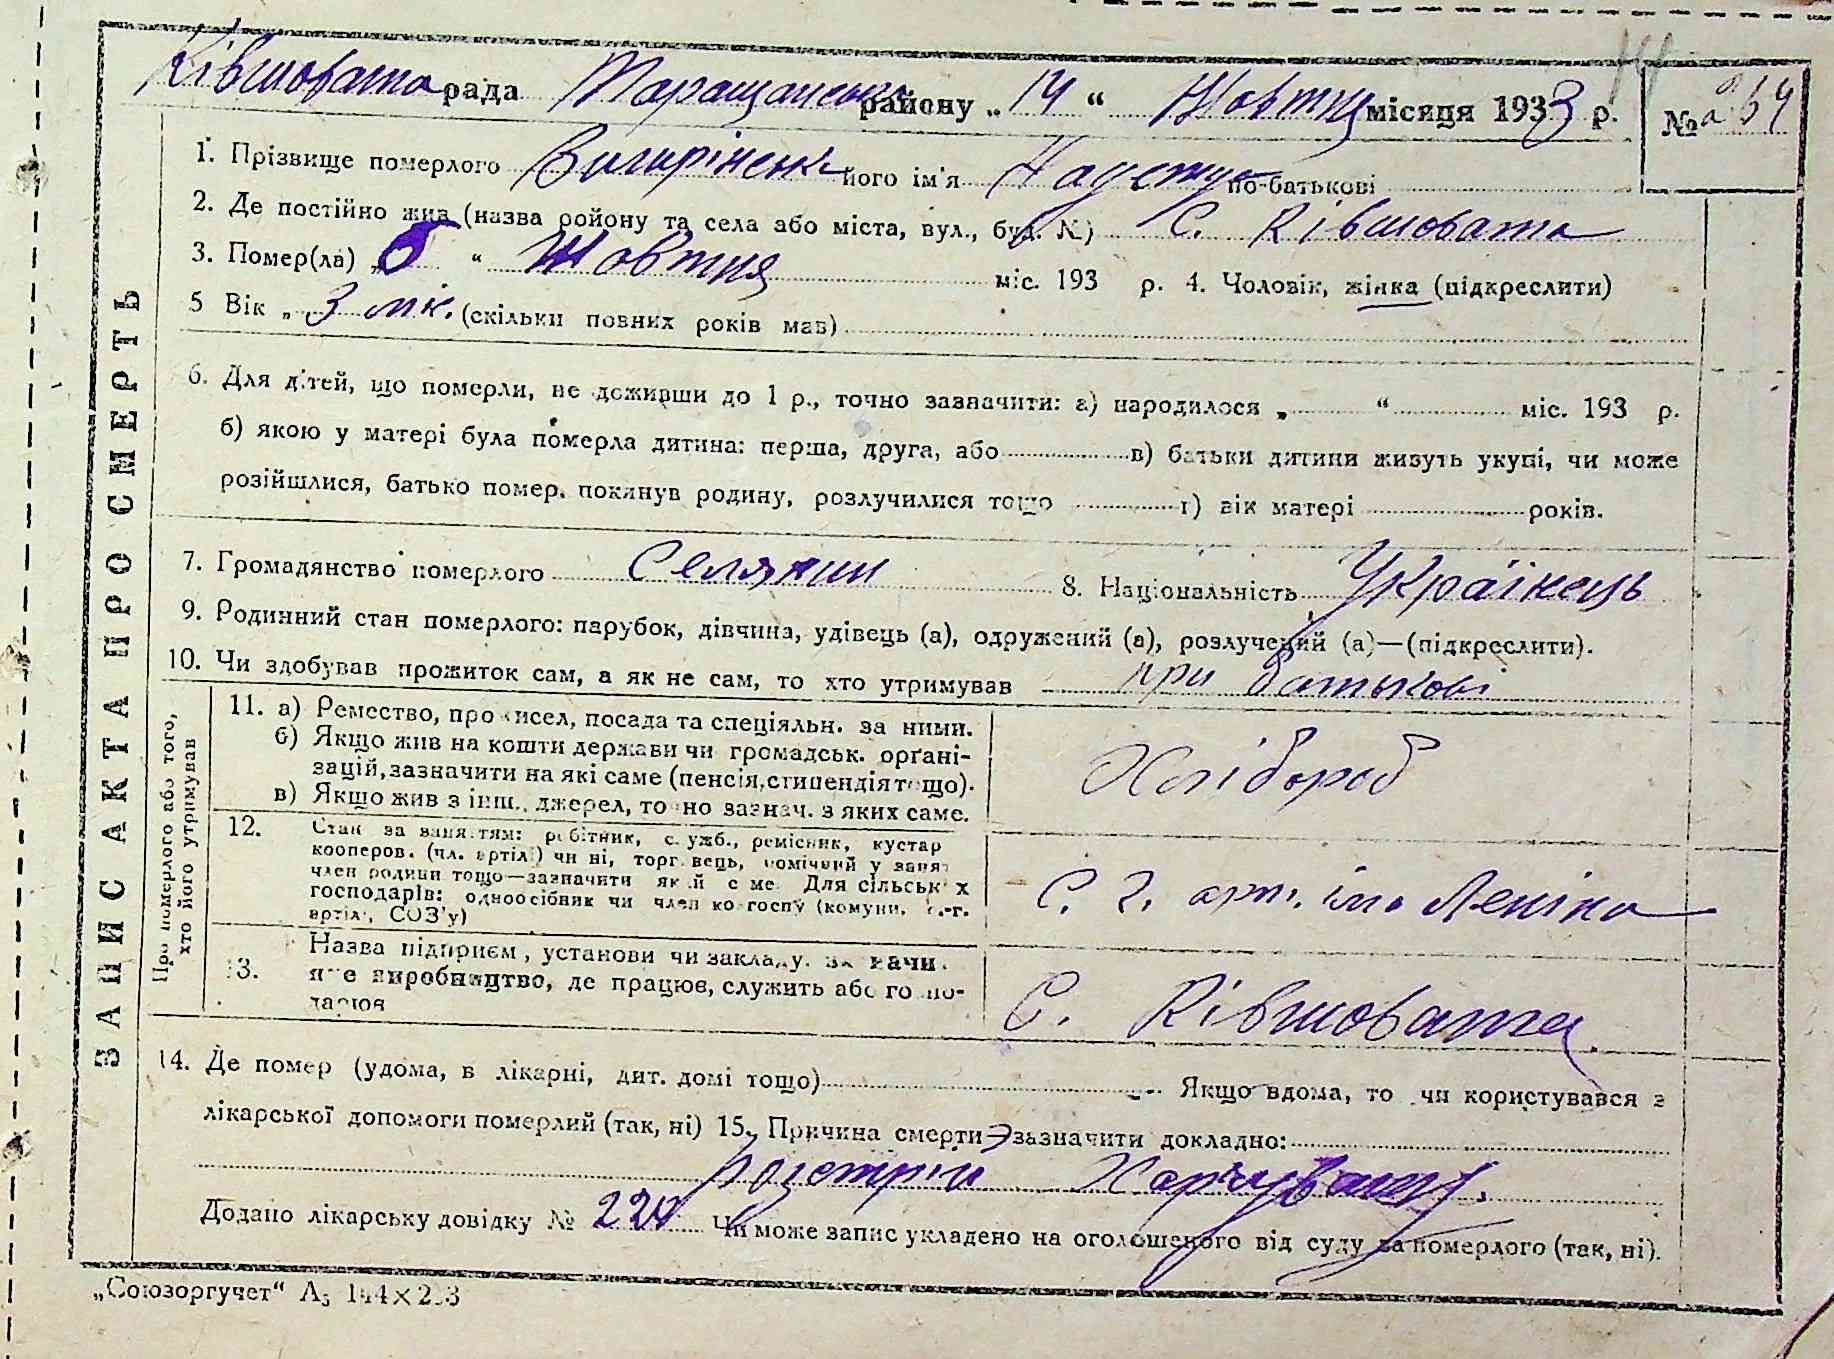 Ківшовата рада Таращанськ району „14“ Жовтня місяця 1933 р. № 264
1. Прізвище померлого його ім'я по-батькові
2. Де постійно жив (назва ройону та села або міста, вул., буд. №) С. Ківшовата
3. Помер(ла) „6“ Жовтня міс. 193 р. 4. Чоловік, жінка (підкреслити)
5 Вік „ 3 мік. (скільки повних років мав)
6. Для дітей, що померли, не доживши до 1 р., точно зазначити: а) народилося „ “ міс. 193 р.
б) якою у матері була померла дитина: перша, друга, або в) батьки дитини живуть укупі, чи може
розійшлися, батько помер, покинув родину, розлучилися тощо г) вік матері років.
7. Громадянство померлого Селянин 8. Національність Українець
9. Родинний стан померлого: парубок, дівчина, удівець (а), одружений (а), розлучений (а)—(підкреслити).
10. Чи здобував прожиток сам, а як не сам, то хто утримував при батькові
11. а) Ремество, промисел, посада та спеціяльн. за ними.
б) Якщо жив на кошти держави чи громадськ. орґані-
зацій, зазначити на які саме (пенсія, стипендія тощо).
в) Якщо жив з інш. джерел, точно зазнач. з яких саме.
Хлібороб
12. Стан за заняттям: робітник, служб., ремісник, кустар
кооперов. (чл. артілі) чи ні, торговець, помічний у занят
член родини тощо—зазначити який саме. Для сільських
господарів: одноосібник чи член колгоспу (комуни, с.-г.
артілі, СОЗ'у)
С. г. арт. ім. Леніна
13. Назва підприєм., установи чи закладу, зазначи.
яке виробництво, де працює, служить або госпо-
дарює
С. Ківшовата
14. Де помер (удома, в лікарні, дит. домі тощо) Якщо вдома, то чи користувався з
лікарської допомоги померлий (так, ні) 15. Причина смерти—зазначити докладно:
Додано лікарську довідку № Чи може запис укладено на оголошеного від суду за померлого (так, ні).
„Союзоргучет“
ЗАПИС АКТА ПРО СМЕРТЬ
Про померлого або того,
хто його утримував